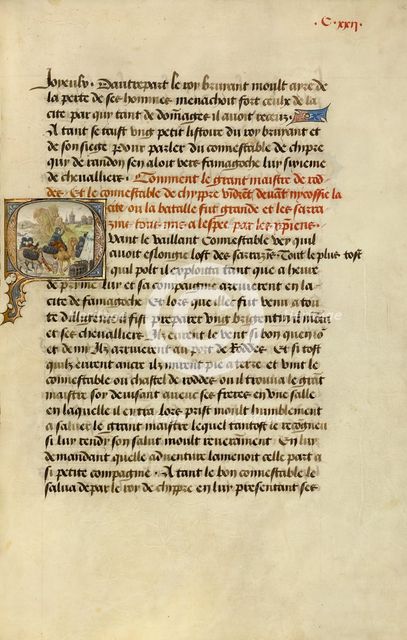 · C · xxij ·
Joyeulx · Dautrepart le roy bruyant moult ayre de
la perte de ses hommes menachoit fort ceulx de la
cite par qui tant de dommages il avoit receuz ·
A tant se taist ung petit listoire du roy bruyant et
de son siege pour parler du connestable de chipre
qui de randon sen aloit vers famagoche luy sixieme
de chevalliers · Comment le grant maistre de rod
des · Et le connestable de chyppre vidrent devant nycossie la
cite ou la bataille fut grande et les sarra
zins tous mis a lespee par les xpiens ·
Quant le vaillant Connestable vey quil
avoit eslongie lost des sarrazins · Tout le plus tost
quil polt il exploitta tant que a heure
de pryme luy et sa compaignie arriverent en la
cite de famagoche · Et lors que elle fut venu a tou
te dilligence il fist preparer ung brigentin il monta
et ses chevalliers · Ilz eurent le vent si bon que non
et demy Ilz arriverent au port de Roddes · Et si tost
quilz eurent ancre ilz mirent pie a terre et vint le
connestable ou chastel de roddes ou il trouva le grant
maistre soy devisant avec ses freres en une salle
en laquelle il entra lors prist moult humblement
a saluer le grant maistre lequel tantost le recongneu
si luy rendy son salut moult reverament · En luy
demandant quelle adventure lamenoit celle part a
si petite compagnie · A tant le bon connestable le
salua de par le roy de chyppre en luy presentant ses